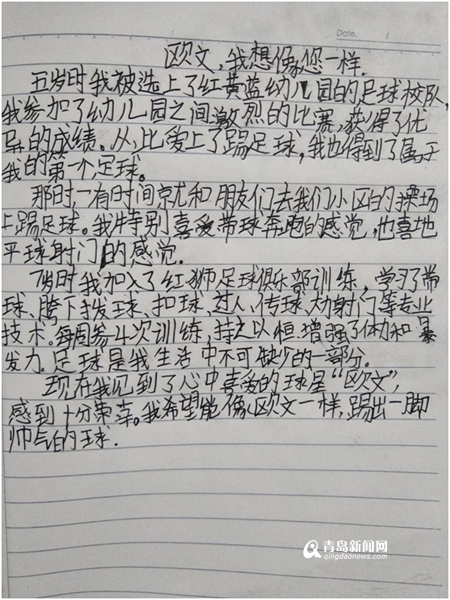 Date. /
欧文,我想像您一样.
五岁时我被选上了红黄蓝幼儿园的足球校队,
我参加了幼儿园之间激烈的比赛,获得了优
异的成绩。从比爱上了踢足球,我也得到了属于
我的第一个足球。
那时一有时间就和朋友们去我们小区的操场
上踢足球。我特别喜爱带球奔跑的感觉,也喜地
平球射门的感觉.
7岁时我加入了红狮足球俱乐部训练,学习了带
球、胯下拨球、扣球、过人、传球、大力射门等专业
技术.每周参4次训练,持之以恒.增强了体力和暴
发力.足球是我生活中不可缺少的一部分.
现在我见到了心中喜爱的球星“欧文”,
感到十分荣幸。我希望能像欧文一样,踢出一脚
帅气的球.
青岛新闻网
qingdaonews.com